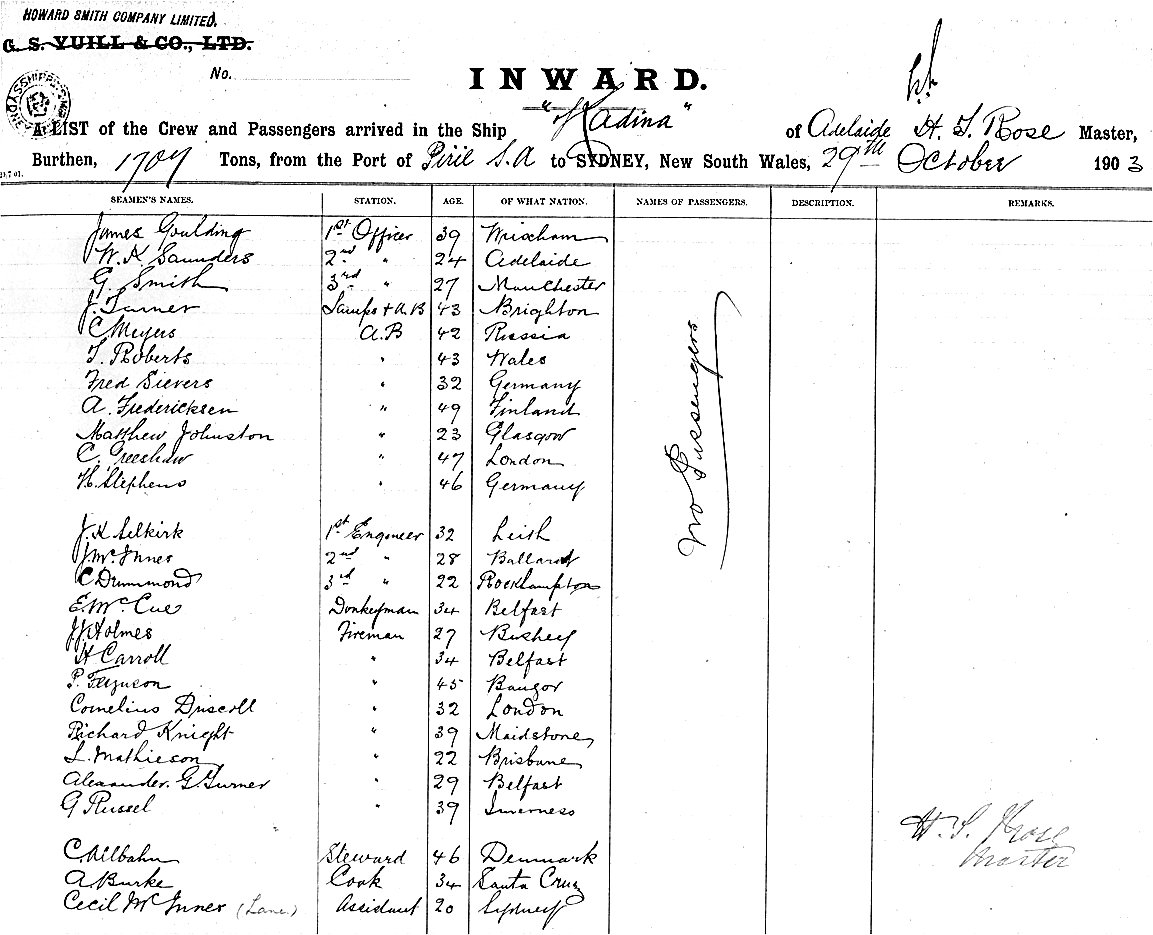 HOWARD SMITH COMPANY LIMITED.
G. S. YUILL & CO., LTD.
No.
INWARD.
A LIST of the Crew and Passengers arrived in the Ship "Kadina" of Adelaide H. S. Rose Master,
Burthen, 1707 Tons, from the Port of Piril S.A to SYDNEY, New South Wales, 29th October 1903
SEAMEN'S NAMES. STATION. AGE. OF WHAT NATION. NAMES OF PASSENGERS. DESCRIPTION. REMARKS.
James Goulding 1st Officer 39 Wrixham
W. K. Saunders 2nd " 24 Adelaide
G. Smith 3rd " 27 Manchester
J. Turner Lamps + A.B 43 Brighton
C Meyers A.B 42 Russia
T. Roberts " 43 Wales
Fred Sievers " 32 Germany
A. Fredericksen " 49 Finland
Matthew Johnston " 23 Glasgow
C. Greeshaw " 47 London
H. Stephens " 46 Germany
No Passengers
J. K Selkirk 1st Engineer 32 Leith
J. Mc Innes 2nd " 28 Ballarat
C Drummond 3rd " 22 Rockhampton
E. Mc Cue Donkeyman 34 Belfast
J J Holmes Fireman 27 Bushey
H Carroll " 34 Belfast
P. Ferguson " 45 Bangor
Cornelius Driscoll " 32 London
Richard Knight " 39 Maidstone
L. Mathieson " 22 Brisbane
Alexander. G. Turner " 29 Belfast
G Russel " 39 Inverness
H. S. Rose
Master
C Ahlbahn Steward 46 Denmark
A Burke Cook 34 Santa Cruz
Cecil Mc Inner (Lane.) Assistant 20 Sydney